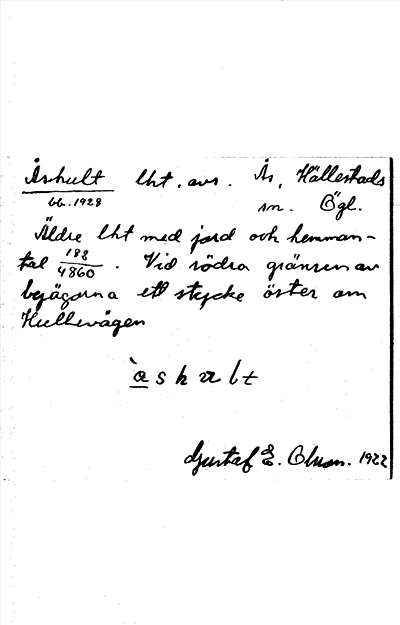 Åshult lht. avs. Ås, Hällestads
bb. 1928 sn. Ögl.
Äldre lht med jord och hemman-
tal 188/4860. Vid södra gränsen av
beägorna ett stycke öster om
Hullevågen
`a s h u l t
Gustaf E. Olson. 1922